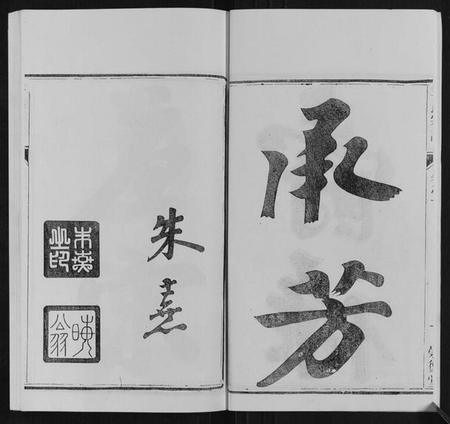 承芳
朱熹
朱熹之印
晦翁